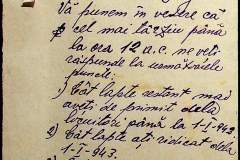 Vă punem în vedere că
cel mai târziu până
la ora 12 a.c. ne veți
răspunde la următoarele
puncte:
1) Cât lapte restant mai
aveți de primit dela
locuitori până la 1-I-943.
2) Cât lapte ați ridicat dela
1-I-943.